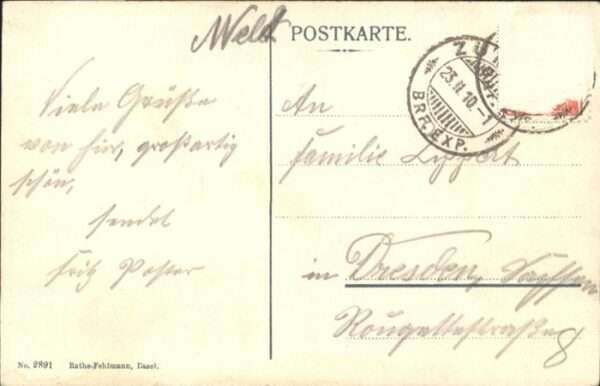 Welt
POSTKARTE.
ZÜ
23.II.10.–1
BRF.EXP.
Viele Grüße
von hier, großartig
schön,
sendet
Fritz
An
Familie Lippert
in Dresden, Sachsen
Rougettestraße 8
No. 2891 Rathe-Fehlmann, Basel.